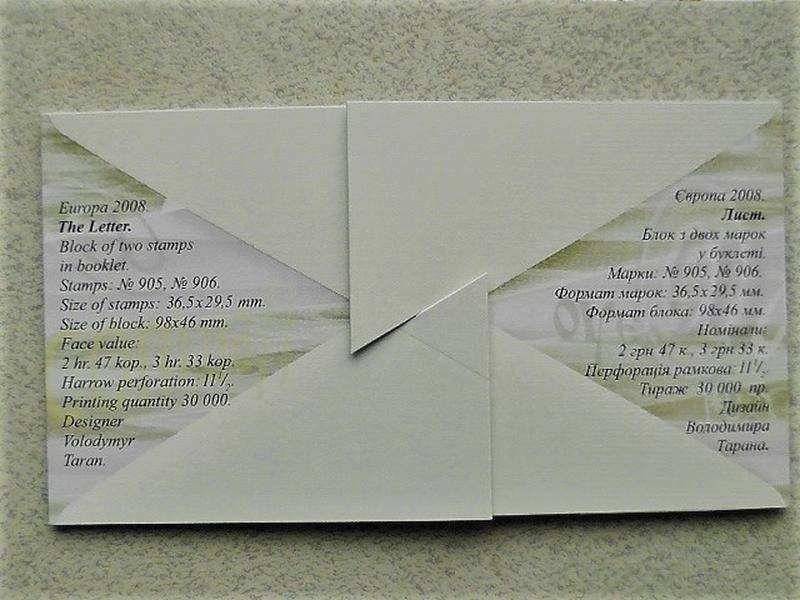 Europa 2008.
The Letter.
Block of two stamps
in booklet.
Stamps: № 905, № 906.
Size of stamps: 36,5x29,5 mm.
Size of block: 98x46 mm.
Face value:
2 hr. 47 kop., 3 hr. 33 kop.
Harrow perforation: 11 1/2.
Printing quantity 30 000.
Designer
Volodymyr
Taran.
Європа 2008.
Лист.
Блок з двох марок
у буклеті.
Марки: № 905, № 906.
Формат марок: 36,5х29,5 мм.
Формат блока: 98х46 мм.
Номінали:
2 грн 47 к., 3 грн 33 к.
Перфорація рамкова: 11 1/2.
Тираж 30 000 пр.
Дизайн
Володимира
Тарана.